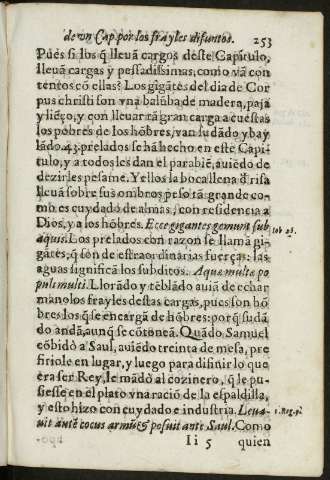 de vn Cap. por los frayles difuntos. 253
Pues si los q̃ lleuã cargos deste Capitulo,
lleuã cargas y pessadissimas, como vã con
tentos cõ ellas? Los gigãtes del dia de Cor
pus christi son vna balũba de madera, paja
y liẽço, y con lleuar tã gran carga a cuestas
los pobres de los hõbres, van sudãdo y bay
lãdo. 43. prelados se hã hecho en este Capi
tulo, y a todos les dan el parabiẽ, auiẽdo de
dezirles pesame. Y ellos la boca llena d̃ risa
lleuã sobre sus ombros peso tã grande co-
mo es cuydado de almas, con residencia a
Dios, y a los hõbres. Ecce gigantes gemunt sub
aquis. Los prelados con razon se llamã gi-
gãtes, q̃ son de estraordinarias fuerças: las
aguas significã los subditos. Aquæ multæ po
puli multi. Llorãdo y tẽblãdo auiã de echar
mano los frayles destas cargas, pues son hõ
bres los q̃ se encargã de hõbres: por q̃ sudã
do andã, aunq̃ se cõtoneã. Quãdo Samuel
cõbidò a Saul, auiẽdo treinta de mesa, pre
firiole en lugar, y luego para difinir lo que
era ser Rey, le mãdò al cozinero, q̃ le pu-
siesse en el plato vna racion de la espaldilla,
y esto hizo con cuydado e industria. Leua-
uit autẽ cocus armũ & posuit ante Saul. Como
Iob 26.
1. Reg. 9.
Ii 5 quien